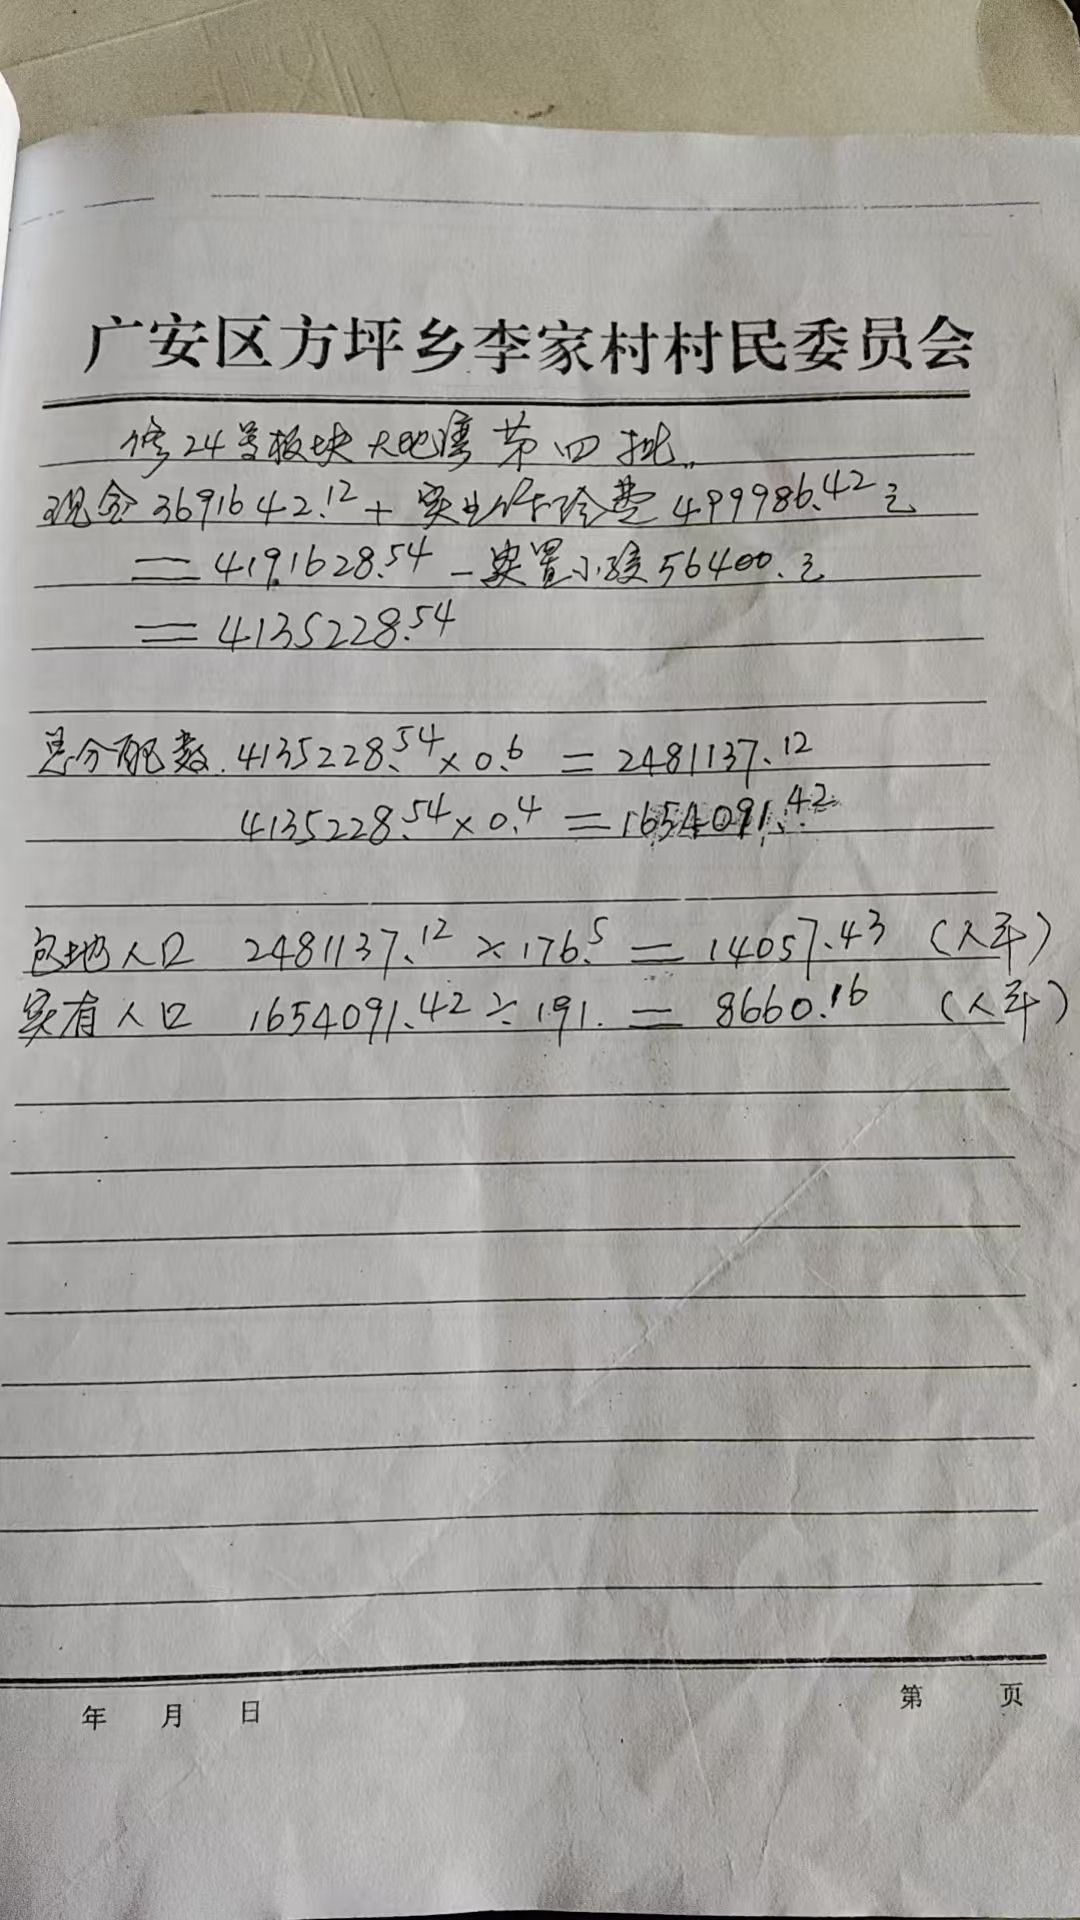 广安区方坪乡李家村村民委员会
修24号板块大地湾第四批
现金3691642.12+失业保险费499986.42元
=4191628.54-安置小孩56400.元
=4135228.54
总分配数.4135228.54×0.6=2481137.12
4135228.54×0.4=1654091.42
包地人口 2481137.12×176.5=14057.43(人平)
实有人口 1654091.42÷191.=8660.16(人平)
年 月 日 第 页